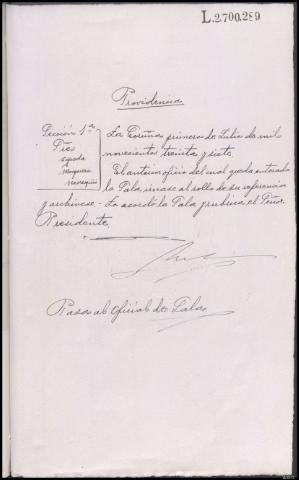 L.2.700.289
Providencia
Sección 1ª
Sres
La Coruña primero de Julio de mil
novecientos treinta y siete.
El anterior oficio del cual queda enterada
la Sala, únase al rollo de su referencia
y archívese.- Lo acordó la Sala y rubrica el Señor
Presidente,
Pasa al Oficial de Sala,